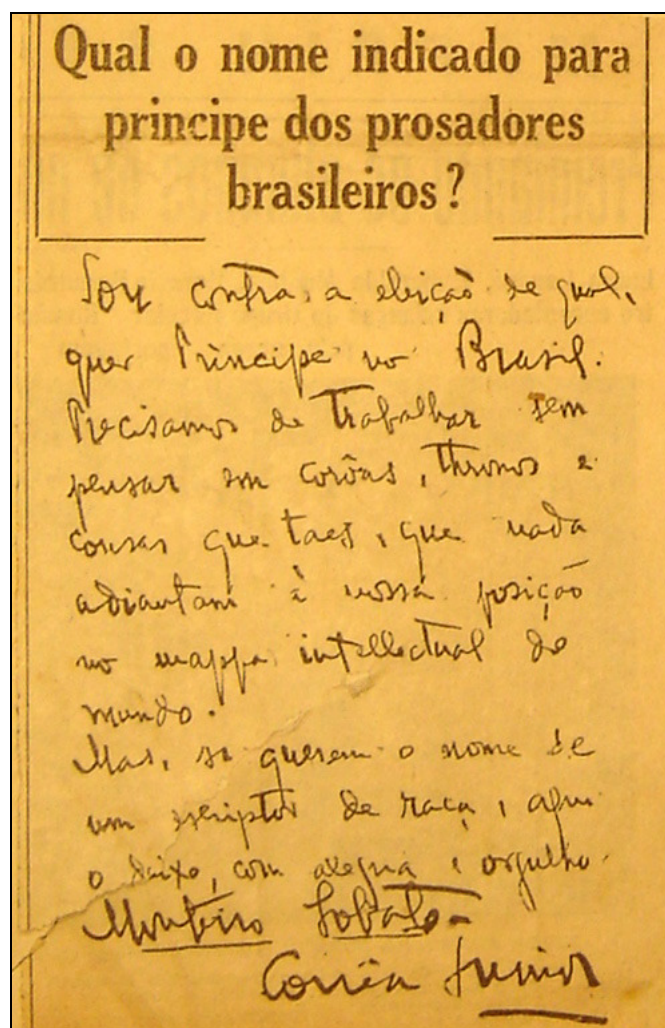 Qual o nome indicado para
principe dos prosadores
brasileiros?
Sou contra, a eleição de qual-
quer Principe no Brasil.
Precisamos de trabalhar sem
pensar em corôas, thronos e
cousas que taes, que nada
adiantam à nossa posição
no mappa intellectual do
mundo.
Mas, se querem o nome de
um escriptor de raça, aqui
o deixo, com alegria e orgulho.
Monteiro Lobato-
Corrêa Junior